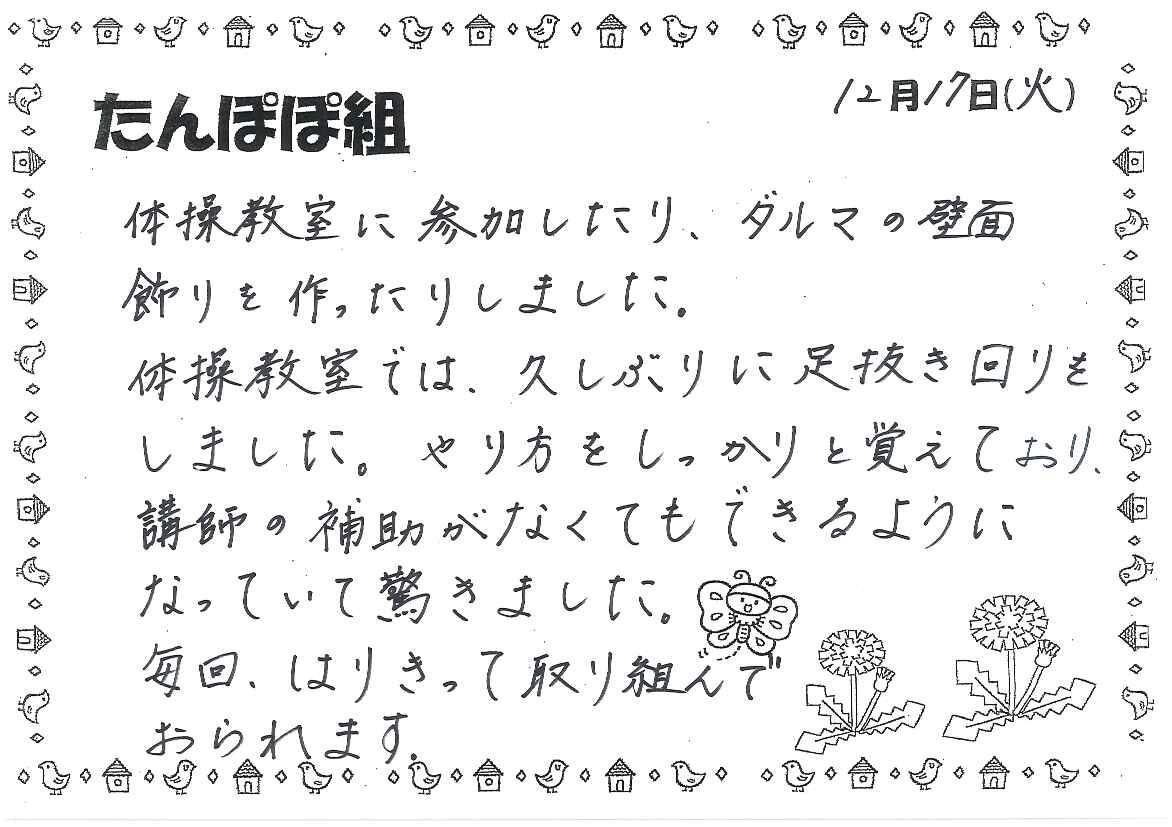 たんぽぽ組
12月17日(火)
体操教室に参加したり、ダルマの壁面
飾りを作ったりしました。
体操教室では、久しぶりに足抜き回りを
しました。やり方をしっかりと覚えており、
講師の補助がなくてもできるように
なっていて驚きました。
毎回、はりきって取り組んで
おられます。